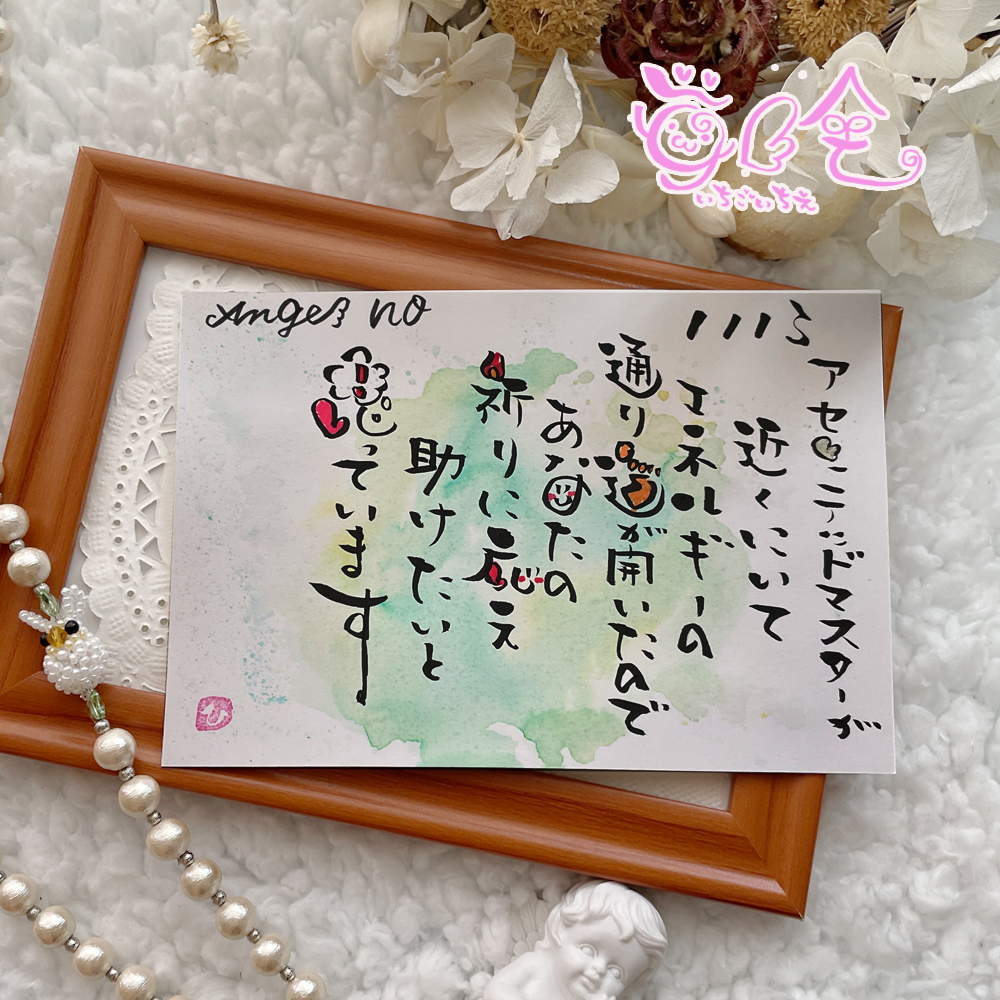 Angel no
1113
アセンデッドマスターが
近くにいて
エネルギーの
通り道が開いたので
あなたの
祈りに応え
助けたいと
思っています
いちごいちえ